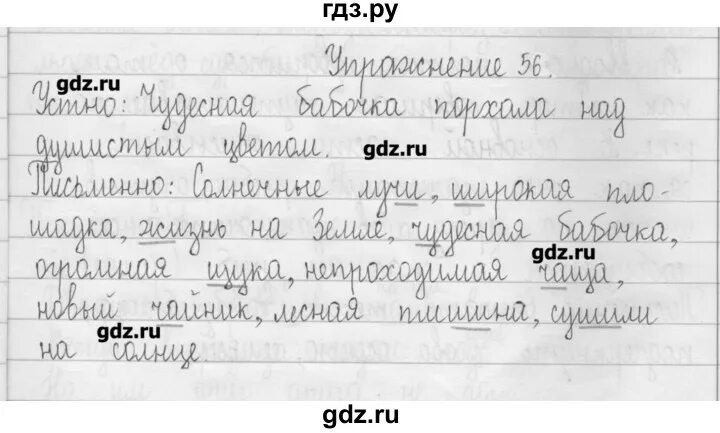 гдз.ру
Упражнение 56.
gdz.ru
Устно: Чудесная бабочка порхала над
душистым цветом. gdz.ru
Письменно: Солнечные лучи, широкая пло-
щадка, жизнь на Земле, чудесная бабочка,
gdz.ru
огромная щука, непроходимая чаща,
новый чайник, лесная тишина, сушили
gdz.ru
на солнце
gdz.ru